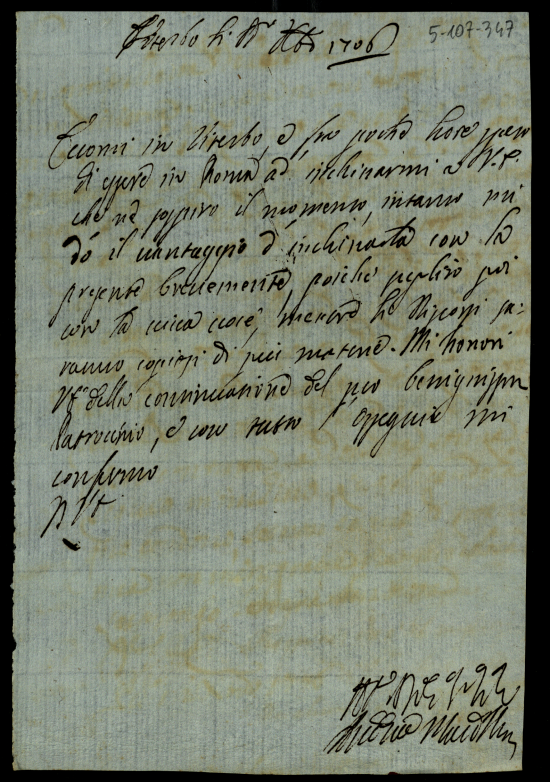 Viterbo li 8bre 1706
5-107-347
Eccomi in Viterbo, e fra poche hore spero
di essere in Roma ad inchinarmi a V.E.
che ne sospiro il momento, intanto mi
dò il vantaggio d'inchinarla con la
presente brevemente, poiche supplirò poi
con la viva voce, mentre li discorsi sa-
ranno copiosi di più materie. Mi honori
V.E. della continuatione del suo benignissmo
Patrocinio, e con tutto l'ossequio mi
confermo
D V.E.